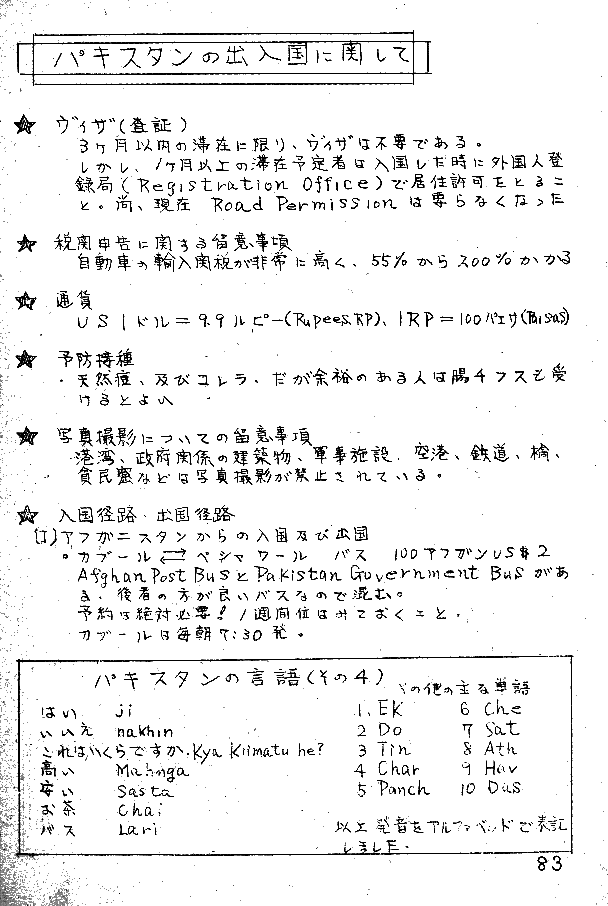 パキスタンの出入国に関して
☆ ヴィザ(査証)
3ヶ月以内の滞在に限り、ヴィザは不要である。
しかし、1ヶ月以上の滞在予定者は入国した時に外国人登
録局(Registration Office)で居住許可をとるこ
と。尚、現在 Road Permission は要らなくなった
☆ 税関申告に関する留意事項
自動車の輸入関税が非常に高く、55%から200%かかる
☆ 通貨
US1ドル=9.9ルピー(Rupees.RP)、1RP=100パエサ(Paisas)
☆ 予防接種
・天然痘、及びコレラ・だが余裕のある人は腸チフスも受
けるとよい
☆ 写真撮影についての留意事項
港湾、政府関係の建築物、軍事施設、空港、鉄道、橋、
貧民窟などは写真撮影が禁止されている。
☆ 入国径路・出国径路
(1)アフガニスタンからの入国及び出国
・カブール ⇄ ペシャワール バス 100アフガン US$2
Afghan Post Bus と Pakistan Government Bus があ
る、後者の方が良いバスなので混む。
予約は絶対必要! 1週間位はみておくこと。
カブールは毎朝7:30発。
パキスタンの言語(その4)
その他の主な単語
はい ji 1. EK 6 Che
いいえ nakhin 2 Do 7 Sat
これはいくらですか. Kya Kiimatu he? 3 Tin 8 Ath
高い Mahnga 4 Char 9 Nav
安い Sasta 5 Panch 10 Das
お茶 Chai
バス Lari 以上発音をアルファベッドで表記
しました.
83